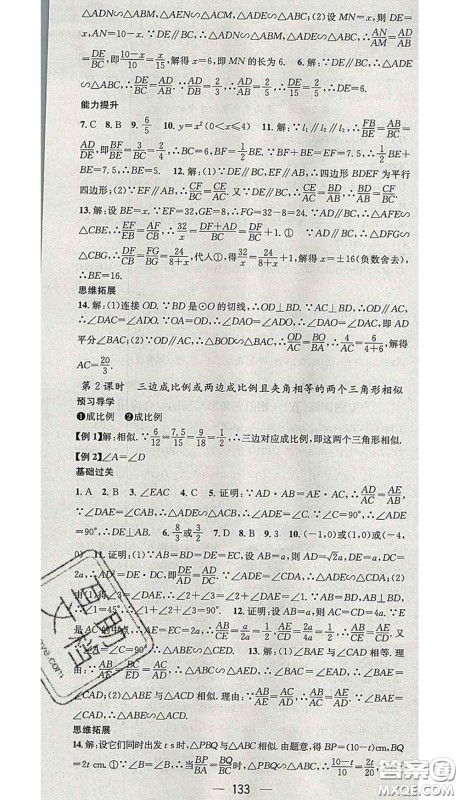 △ADN∽△ABM, △AEN∽△ACM, △ADE∽△ABC;(2)设 MN=x,则 DE=
x,AN=10-x.∵DE∥BC,∴△ADN∽△ABM,△ADE∽△ABC,∴AN/AM=AD/AB=
DE/BC,即(10-x)/10=x/15,解得 x=6,即 MN 的长为 6. 6.解:∵DE∥BC,∴△ADE
∽△ABC,∴DE/BC=AD/AB.∵AD/AB=2/3,∴DE/BC=2/3,即DE/9=2/3,∴DE=6.
能力提升
7.C 8.B 9.6/5 10.y=x²(0<x≤4) 11.解:∵l₁∥l₂∥l₃,∴FB/BE=AB/BC=
AD/DE,即BF/BE=3/BC=2/4,∴BC=6,BF=1/2BE,∵BF+BE=EF=7.5,∴1/2BE+
BE=7.5,∴BE=5. 12.解:(1)∵EF∥AB,DE∥BC,∴四边形 BDEF 为平行
四边形;(2)∵EF∥AB,∴CF/BC=CE/AC. 又∵DE∥BC,∴CE/AC=BD/AB,∴BD/AB=CF/BC.
13.解:设 BE=x.∵EF=32,GE=8,∴FG=32-8=24.∵AD∥BC,∴△AFE∽
△CBE,∴EF/EB=AF/CB,∴32/x=(DF+AD)/BC=DF/BC+1.① ∵AD∥BC,∴△DFG
∽△CBG,∴DF/BC=FG/BG=24/(8+x),代入①,得32/x=24/(8+x)+1,解得 x=±16(负数舍去),
∴BE=16.
思维拓展
14.解:(1)连接 OD.∵BD 是⊙O 的切线,∴OD⊥BD.∵AC⊥BD,∴OD∥AC,
∴∠DAC=∠ADO.∵OA=OD,∴∠OAD=∠ADO,∴∠OAD=∠DAC,即 AD
平分∠BAC;(2)∵OD∥AC,∴△BOD∽△BAC,∴OD/AC=BO/BA,∴4/AC=6/(4+6),解得
AC=20/3.
第 2 课时 三边成比例或两边成比例且夹角相等的两个三角形相似
预习导学
❶成比例 ❷成比例
【例 1】解:相似.∵6/12=7.5/15=9/18,∴三边对应成比例,即这两个三角形相似.
【例 2】∠A=∠D
基础过关
1.A 2.B 3.∠EAC 4.C 5.证明:∵AD·AB=AE·AC,∴AD/AC=AE/AB.又
∵∠DAE=∠CAB,∴△DAE∽△CAB,∴∠ADE=∠C.∵∠C=90°,∴∠ADE
=90°,∴DE⊥AB. 6.8/3或3/2 7.D 8.B 9.3 10.(-1,0)或(1,0)或(-4,
0) 11.证明:(1)∵AB=BD=DE=EC,设 AB=a,则 AD=√2a,DE=a,DC=
2a,∴AD²=2a²=DE·DC,即AD/DE=DC/AD.又∵∠EDA=∠ADC,∴△ADE∽△CDA;
(2)由(1)得∠3=∠DAE,∴∠2+∠3=∠2+∠DAE=∠1,∵AB=BD,∠B=90°,
∴∠1=45°,∴∠1+∠2+∠3=90°. 12.证明:设 AB=a,则 AC=CD=4a.∵E
是 AC的中点,∴AE=2a.∵AE/CD=2a/4a=1/2,AB/CE=a/2a=1/2,
13.解:(1)∠BAE 与∠CAD 相等. 理
由:∵AB/AE=BC/ED=AC/AD,∴△ABC∽△AED,∴∠BAC=∠EAD,∴∠BAE=
∠CAD;(2)△ABE 与△ACD 相似. 理由:∵AB/AE=AC/AD,∴AB/AC=AE/AD.
思维拓展
14.解:设它们同时出发 t s时,△PBQ 与△ABC 相似.由题意,得 BP=(10-t)cm,BQ
=2t cm.①当BP/BA=BQ/BC时,△PBQ∽△ABC,∴(10-t)/10=2t/20,
133
MXQE.COM